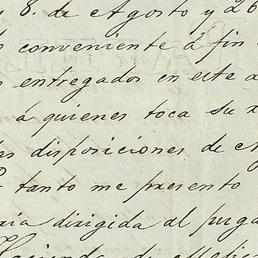 8. de Agosto y 26
conveniente á fin
entregados en este
á quienes toca su
disposiciones de
tanto me presento
dirigida al
Hacienda de